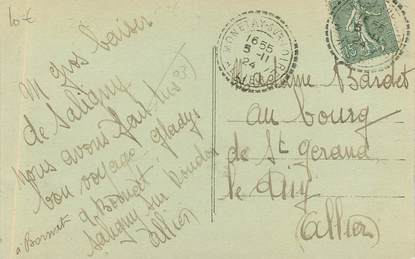 10 €
Un gros baiser
de Saligny
Nous avons fait
bon voyage. Gladys
Saligny sur Roudon
Allier
1655
5-11
24
Madame Bardet
au bourg
de St Gerand
le Puy
(Allier)